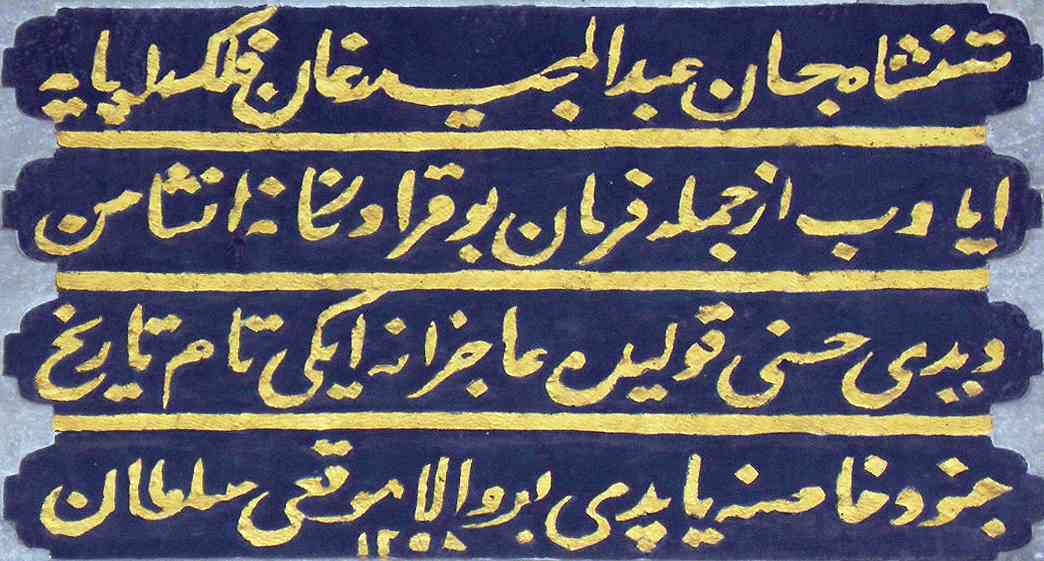 شهنشاه جهان عبدالمجید خان فلک پایه
ایدوب از جمله فرمان بو قراولخانه انشاسن
دیدی حسنی قولیده عاجزانه ایکی تام تاریخ
جنود خاصنه یاپدی بر والا موقعی سلطان
١٢٥٨